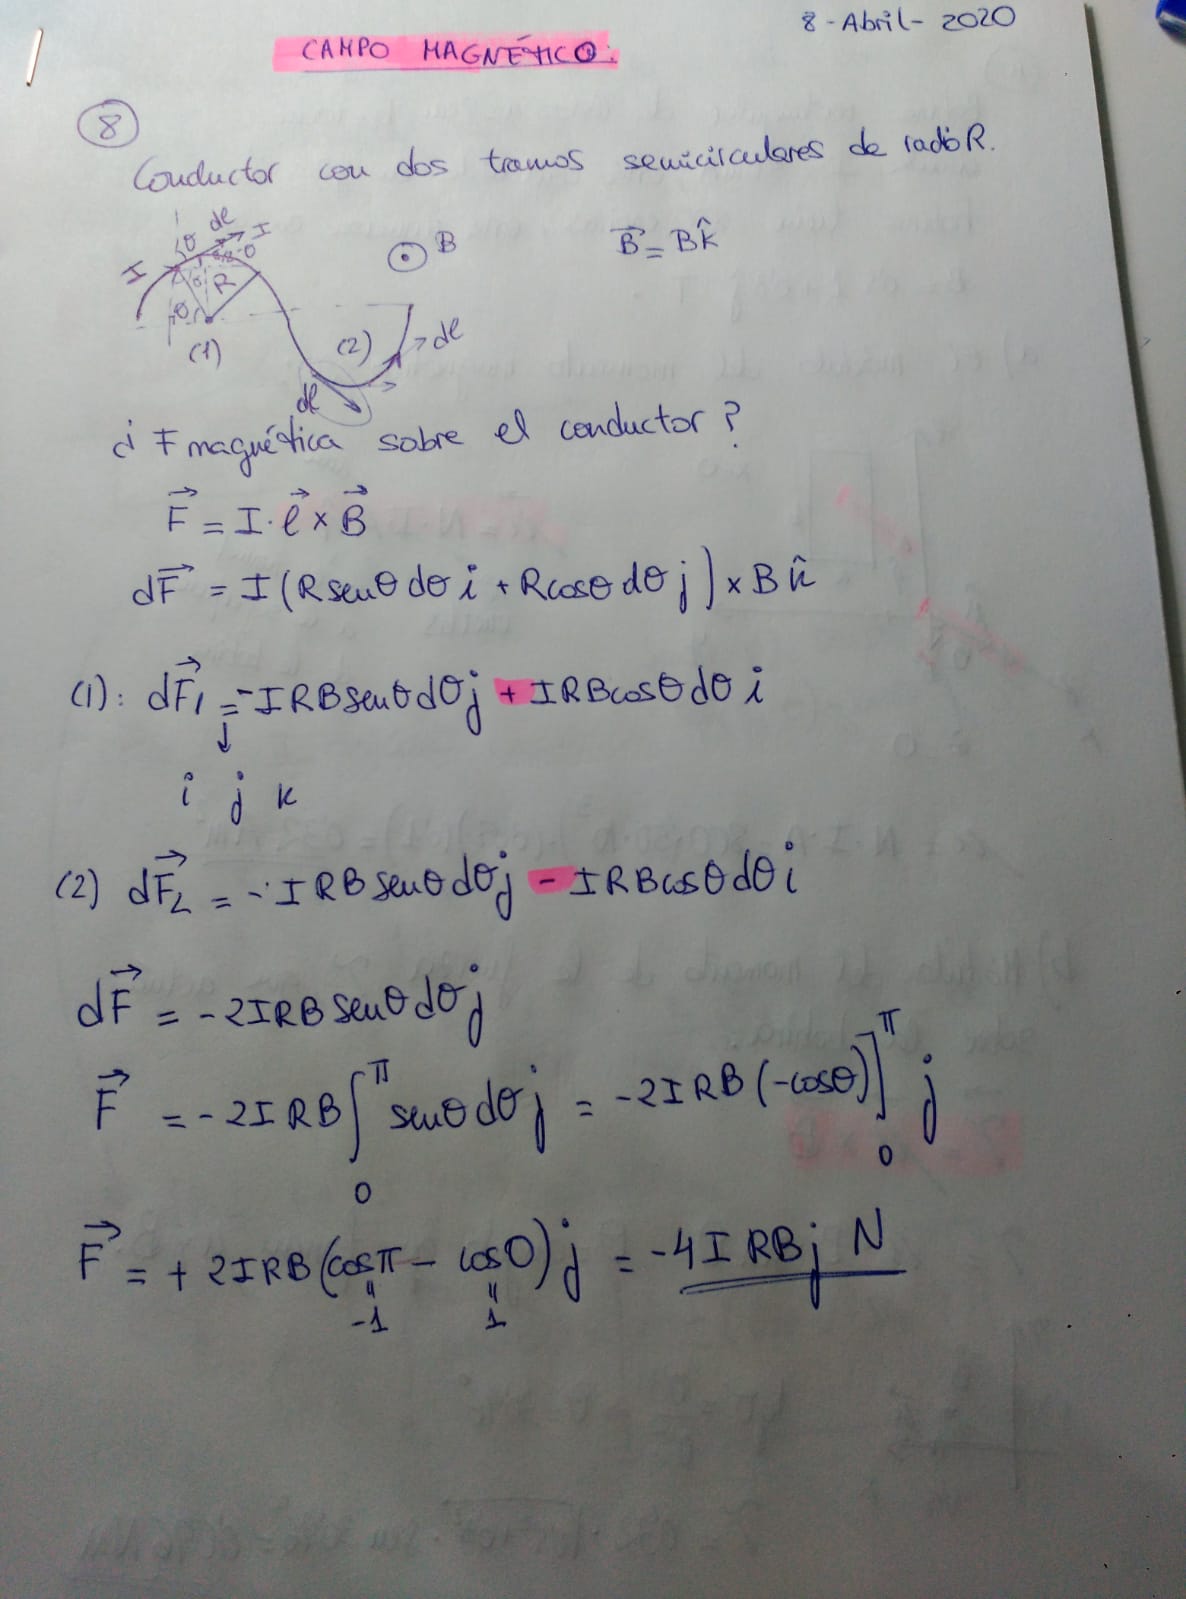 8 - Abril - 2020
CAMPO MAGNÉTICO:
8
Conductor con dos tramos semicirculares de radio R.
θ dl I
I
R
θ
(1)
⊙ B
B⃗ = B k̂
(2)
dl
dl
¿ F magnética sobre el conductor?
F⃗ = I · ℓ⃗ × B⃗
dF⃗ = I (R senθ dθ i + R cosθ dθ j) × B k̂
(1): dF⃗₁ = -IRB senθ dθ j + IRB cosθ dθ i
↓
i j k
(2) dF⃗₂ = - IRB senθ dθ j - IRB cosθ dθ i
dF⃗ = -2IRB senθ dθ j
F⃗ = -2IRB ∫₀^π senθ dθ j = -2IRB (-cosθ)]₀^π j
F⃗ = + 2IRB (cosπ - cos0) j = -4IRB j N
-1 1